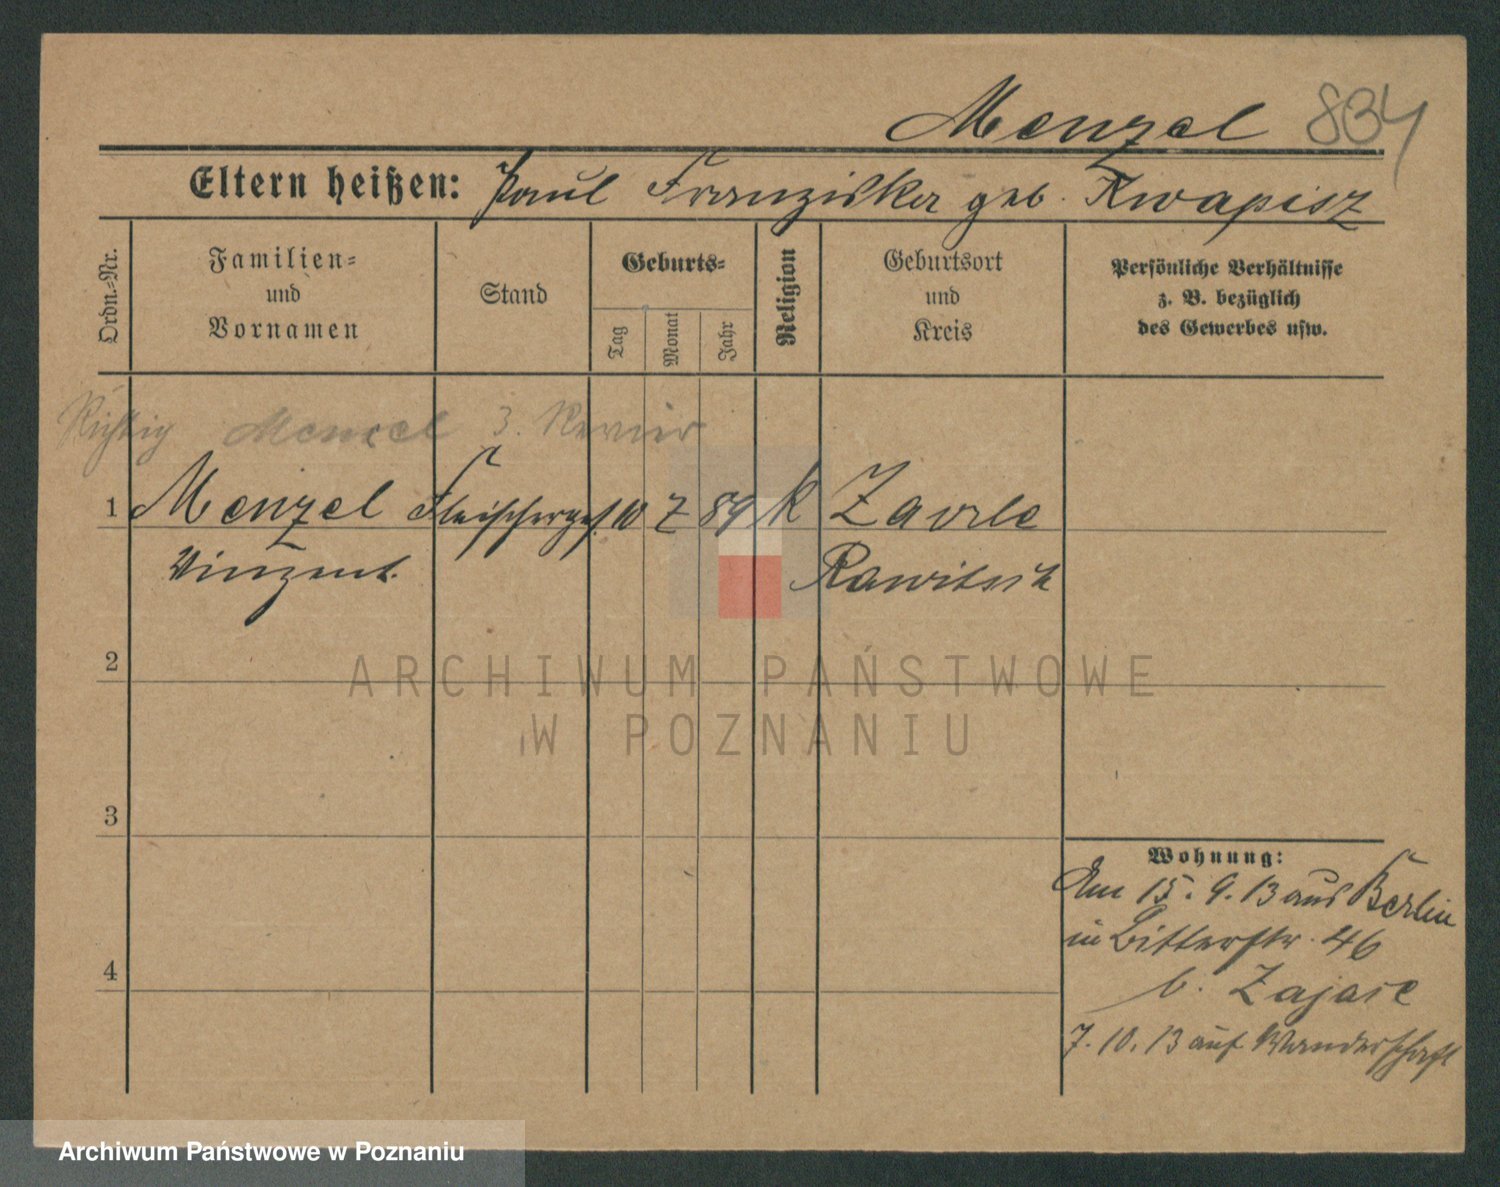 Menzel 834
Eltern heißen: Paul Franziska geb. Kwapisz
Ordn.-Nr.
Familien-
und
Vornamen
Stand
Geburts-
Tag
Monat
Jahr
Religion
Geburtsort
und
Kreis
Persönliche Verhältnisse
z. B. bezüglich
des Gewerbes usw.
Richtig Menzel 3. Revier
1 Menzel Fleischerges. 10 7 89 k
Vinzent. Rawitsch
2
3
4
Wohnung:
Am 15. 9. 13 aus Berlin
in Bitterstr. 46
b.
7. 10. 13 auf Wanderschaft
ARCHIWUM PAŃSTWOWE
W POZNANIU
Archiwum Państwowe w Poznaniu